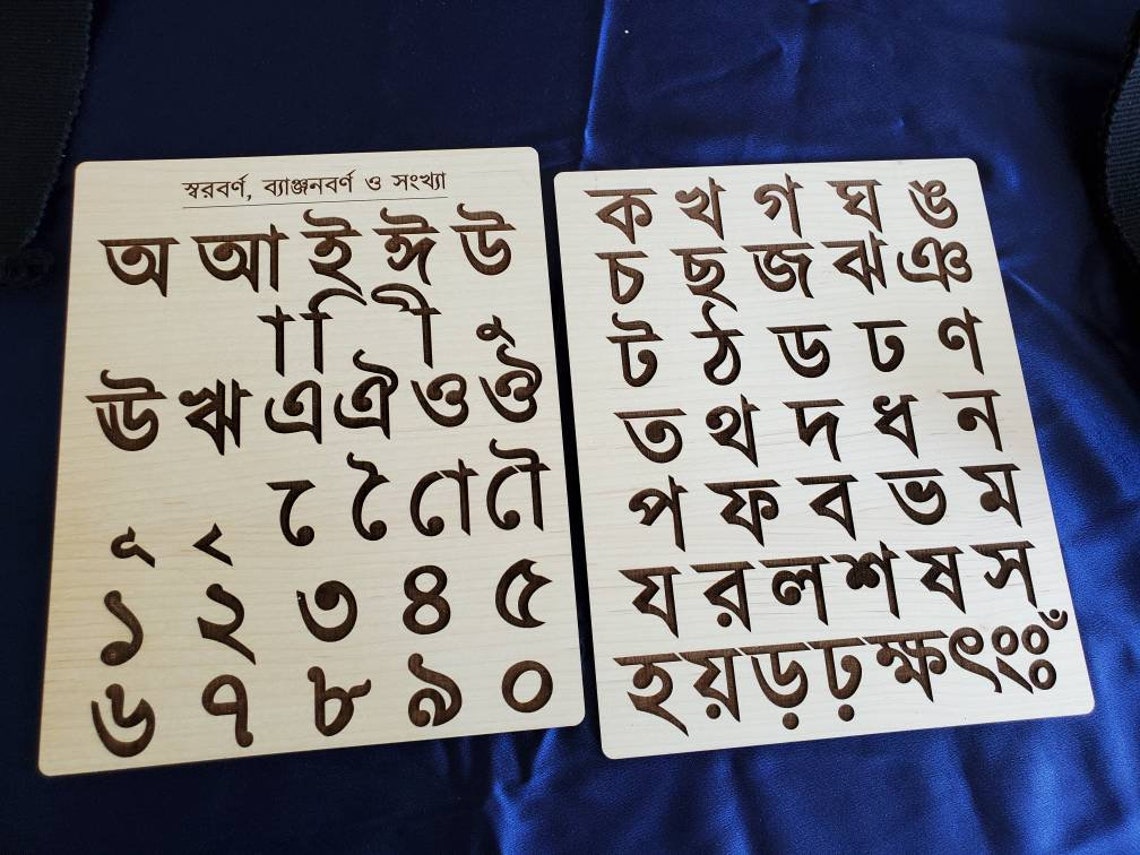 স্বরবর্ণ, ব্যাঞ্জনবর্ণ ও সংখ্যা
অ আ ই ঈ উ
া ি ী ু
ঊ ঋ এ ঐ ও ঔ
ূ ৃ ে ৈ ো ৌ
১ ২ ৩ ৪ ৫
৬ ৭ ৮ ৯ ০
ক খ গ ঘ ঙ
চ ছ জ ঝ ঞ
ট ঠ ড ঢ ণ
ত থ দ ধ ন
প ফ ব ভ ম
য র ল শ ষ স
হ য় ড় ঢ় ক্ষ ৎ ং ঃ ঁ